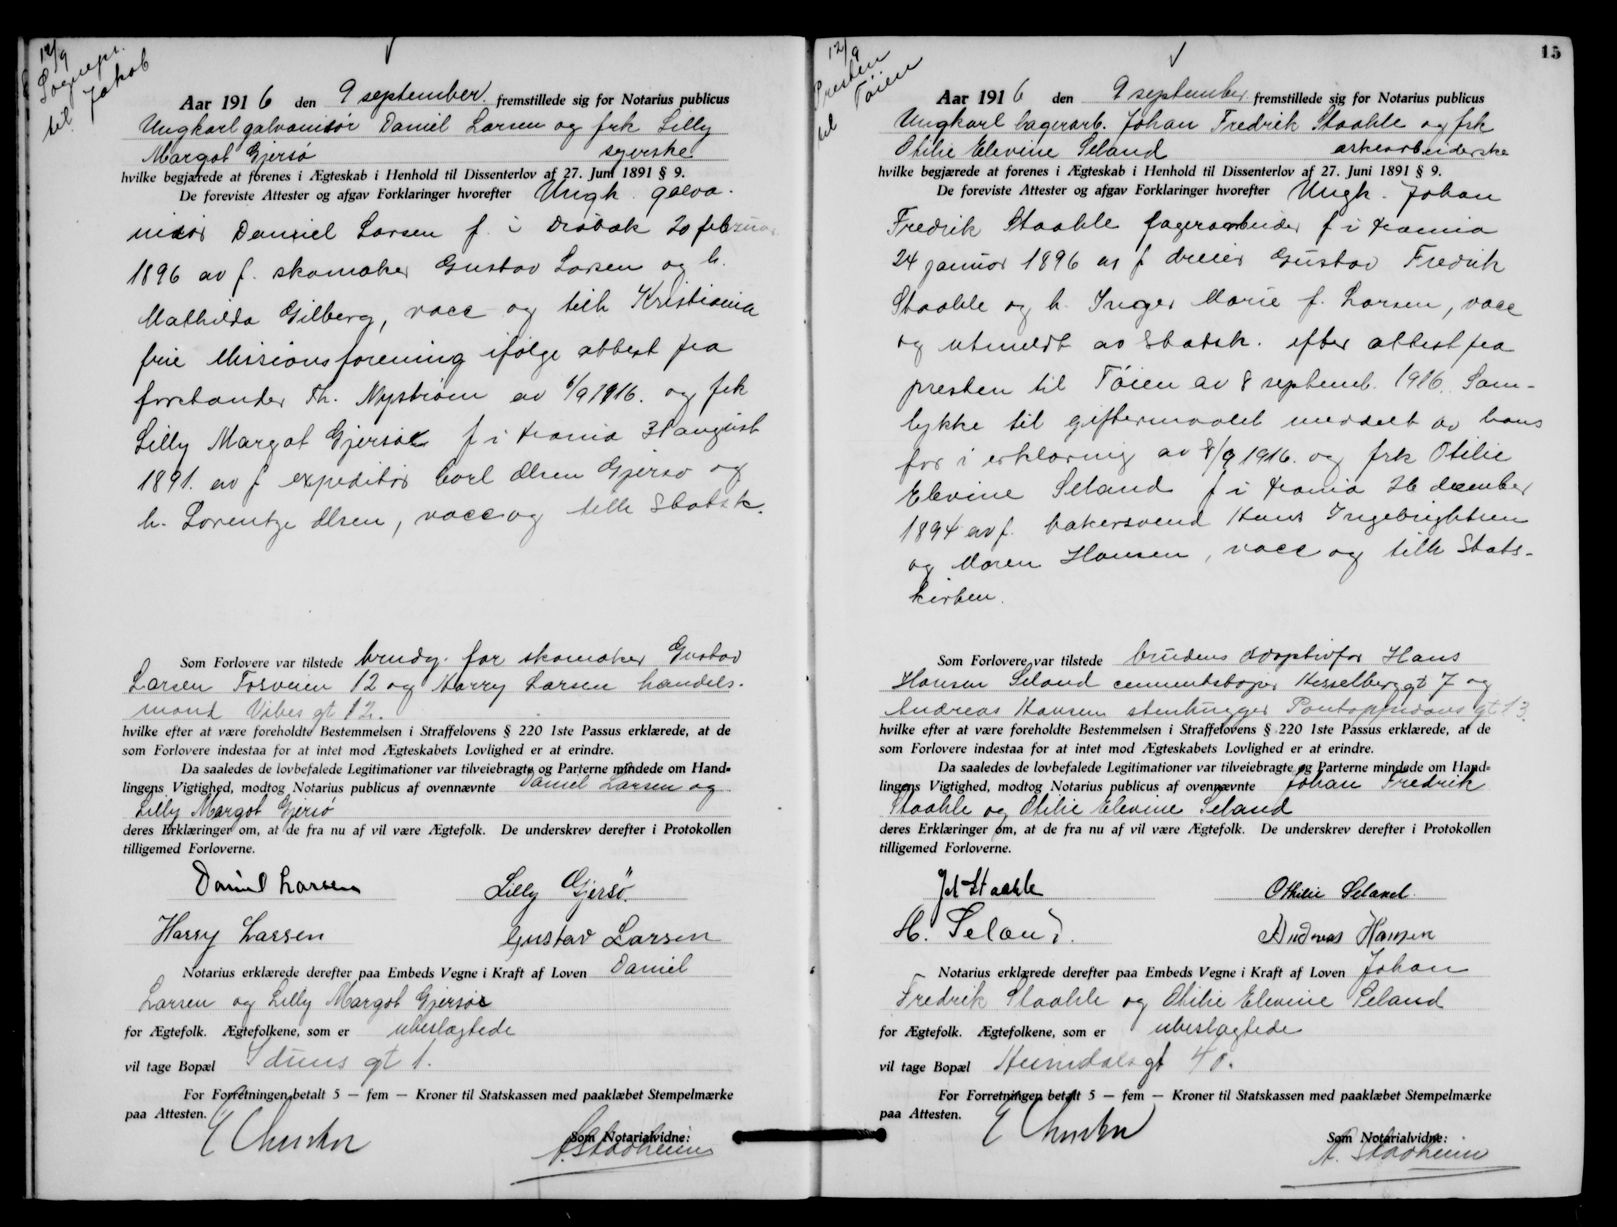 12/9
Sognepr.
til Jakob
Aar 1916 den 9 september fremstillede sig for Notarius publicus
Ungkarl galvanisør Daniel Larsen og frk Lilly
Margot Gjersø syerske
hvilke begjærede at forenes i Ægteskab i Henhold til Dissenterlov af 27. Juni 1891 § 9.
De foreviste Attester og afgav Forklaringer hvorefter Ungk. galva-
nisør Daniel Larsen f. i Drøbak 20 februar
1896 av f. skomaker Gustav Larsen og h.
Mathilda Gilberg, vacc og tilh Kristiania
frie Missionsforening ifølge attest fra
forstander Th. Nystrøm av 6/9 1916. og frk
Lilly Margot Gjersøe f i Krania 31 august
1891. av f expeditør Carl Olsen Gjersø og
h. Lorentze Olsen, vacc og tilh Statsk.
Som Forlovere var tilstede brudg. far skomaker Gustav
Larsen Tosveien 12 og Harry Larsen handels-
mand Vibes gt 12.
hvilke efter at være foreholdte Bestemmelsen i Straffelovens § 220 1ste Passus erklærede, at de
som Forlovere indestaa for at intet mod Ægteskabets Lovlighed er at erindre.
Da saaledes de lovbefalede Legitimationer var tilveiebragte og Parterne mindede om Hand-
lingens Vigtighed, modtog Notarius publicus af ovennævnte Daniel Larsen og
Lilly Margot Gjersø
deres Erklæringer om, at de fra nu af vil være Ægtefolk. De underskrev derefter i Protokollen
tilligemed Forloverne.
Daniel Larsen Lilly Gjersö.
Harry Larsen Gustav Larsen
Notarius erklærede derefter paa Embeds Vegne i Kraft af Loven Daniel
Larsen og Lilly Margot Gjersøe
for Ægtefolk. Ægtefolkene, som er ubeslægtede
vil tage Bopæl Iduns gt 1.
For Forretningen betalt 5 — fem — Kroner til Statskassen med paaklæbet Stempelmærke
paa Attesten.
Som Notarialvidne:
A. Stadheim
15
12/9
Presten
til Tøien
Aar 1916 den 9 september fremstillede sig for Notarius publicus
Ungkarl lagerarb. Johan Fredrik Staahle og frk
Otilie Elevine Seland æskearbeiderske
hvilke begjærede at forenes i Ægteskab i Henhold til Dissenterlov af 27. Juni 1891 § 9.
De foreviste Attester og afgav Forklaringer hvorefter Ungk. Johan
Fredrik Staahle lagerarbeider f i Krania
24 januar 1896 av f dreier Gustav Fredrik
Staahle og h. Inger Marie f. Larsen, vacc
og utmeldt av Statsk. efter attest fra
presten til Tøien av 8 septemb. 1916. Sam-
tykke til giftermaalet meddelt av hans
far i erklæring av 8/9 1916. og frk Otilie
Elevine Seland f i Krania 26 december
1894 av f. bakersvend Hans Ingebrigtsen
og Maren Hansen, vacc og tilh Stats-
kirken.
Som Forlovere var tilstede brudens adoptivfar Hans
Hansen Seland cementstøper Hesselberggt 7 og
Andreas Hansen stenhugger Pontoppidans gt 13.
hvilke efter at være foreholdte Bestemmelsen i Straffelovens § 220 1ste Passus erklærede, at de
som Forlovere indestaa for at intet mod Ægteskabets Lovlighed er at erindre.
Da saaledes de lovbefalede Legitimationer var tilveiebragte og Parterne mindede om Hand-
lingens Vigtighed, modtog Notarius publicus af ovennævnte Johan Fredrik
Staahle og Otilie Elevine Seland
deres Erklæringer om, at de fra nu af vil være Ægtefolk. De underskrev derefter i Protokollen
tilligemed Forloverne.
Joh Staahle Othilie Seland.
H. Seland. Andreas Hansen
Notarius erklærede derefter paa Embeds Vegne i Kraft af Loven Johan
Fredrik Staahle og Otilie Elevine Seland
for Ægtefolk. Ægtefolkene, som er ubeslægtede
vil tage Bopæl Heimdalsgt 40.
For Forretningen betalt 5 — fem — Kroner til Statskassen med paaklæbet Stempelmærke
paa Attesten.
Som Notarialvidne:
A. Stadheim